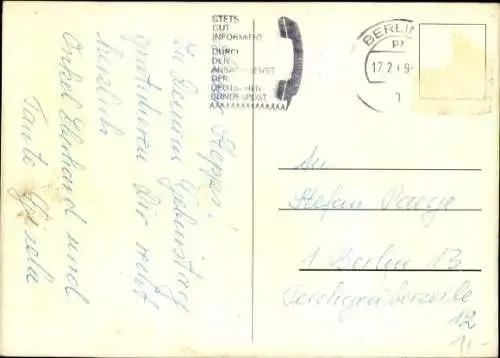 STETS
GUT
INFORMIERT
DURCH
DEN
ANSAGEDIENST
DER
DEUTSCHEN
BUNDESPOST
BERLIN
17.2
1
Steppi!
Zu Deinem Geburtstag
gratulieren Dir recht
herzlich
Onkel Ekkehard und
Tante Gisela
An
Stefan Paege
1 Berlin 13
12